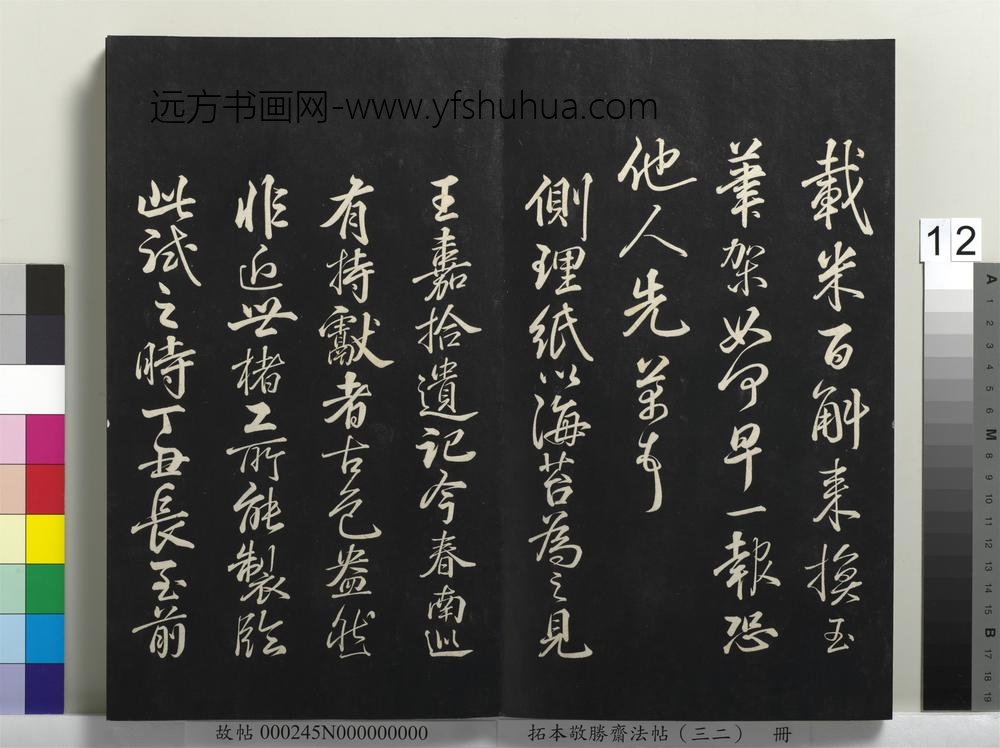 载米百斛来換玉
筆架如何早一報恐
他人先萬〻
側理紙以海苔為之見
王嘉拾遺記今春南巡
有持獻者古色盎然
非近世楮工所能製臨
此試之時丁丑長至前
远方书画网-www.yfshuhua.com
12
故帖 000245N000000000
拓本敬勝齋法帖（三二） 冊
A 1 2 3 4 5 6 M 8 9 10 11 12 13 14 15 B 17 18 19